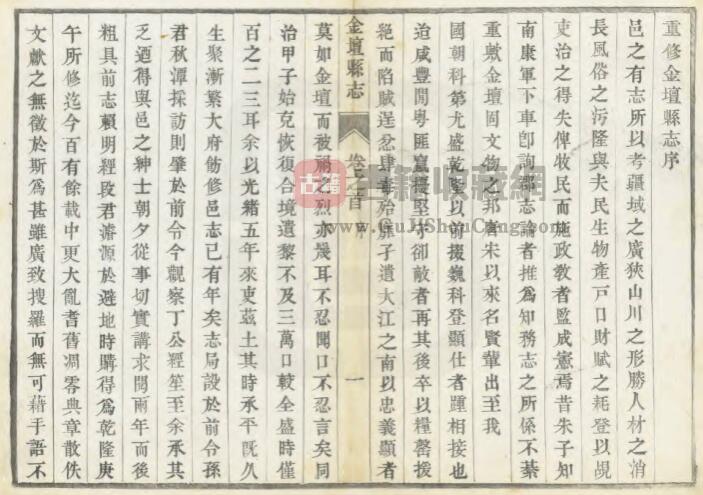 重修金壇縣志序
邑之有志所以考疆域之廣狹山川之形勝人材之消
長風俗之污隆與夫民生物產戶口財賦之耗登以覘
吏治之得失俾牧民而施政教者監成憲焉昔朱子知
南康軍下車卽詢郡志論者推爲知務志之所係不綦
重歟金壇固文物之邦宋以來名賢輩出至我
國朝科第尤盛乾隆以前掇巍科登顯仕者踵相接也
迨咸豐間粵匪竄擾堅守卻敵者再其後卒以糧罄援
絕而陷賊逞忿肆毒殆無孑遺大江之南以忠義顯者
金壇縣志
卷之首
序
一
莫如金壇而被禍之烈亦幾耳不忍聞口不忍言矣同
治甲子始克恢復合境遺黎不及三萬口較全盛時僅
百之二三耳余以光緒五年來吏茲土其時承平旣久
生聚漸繁大府飭修邑志已有年矣志局設於前令孫
君秋潭採訪則肇於前令今觀察丁公經笙至余承其
乏迺得與邑之紳士朝夕從事切實講求閱兩年而後
粗具前志賴明經段君濬源於避地時購得爲乾隆庚
午所修迄今百有餘載中更大亂耆舊凋零典章散佚
文獻之無徵於斯爲甚雖廣致搜羅而無可藉手語不
古籍
書籍收藏網
www.GuJiShouCang.com